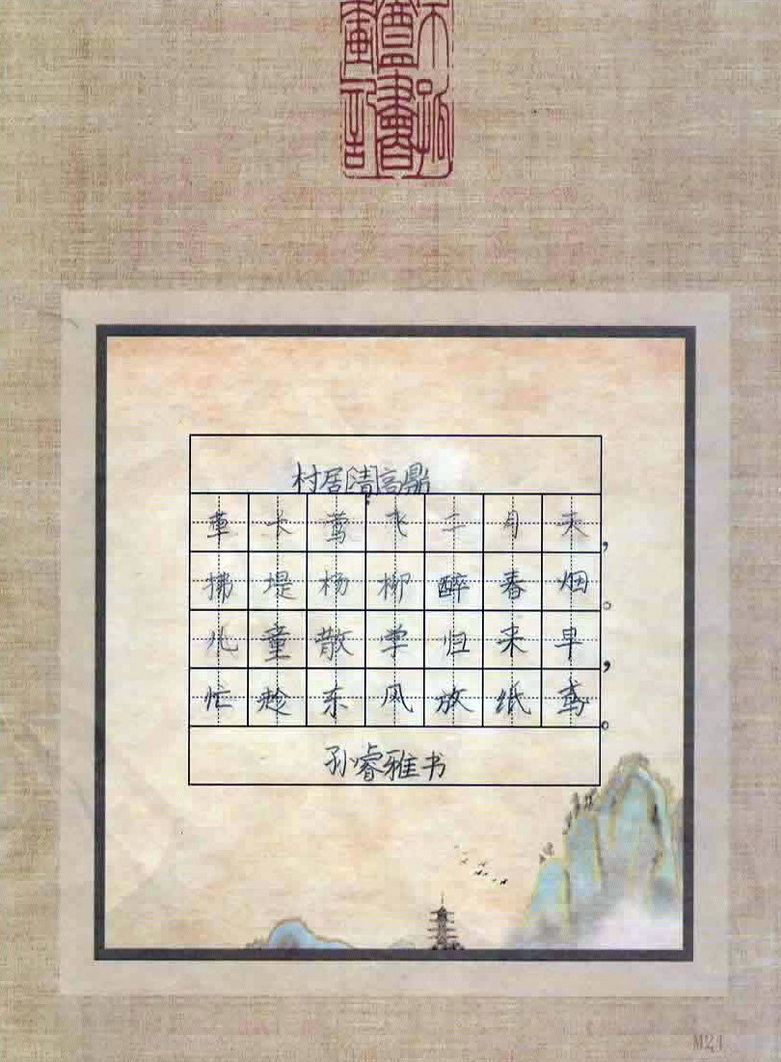 村居[清]高鼎
草长莺飞二月天，
拂堤杨柳醉春烟。
儿童散学归来早，
忙趁东风放纸鸢。
孙睿雅书